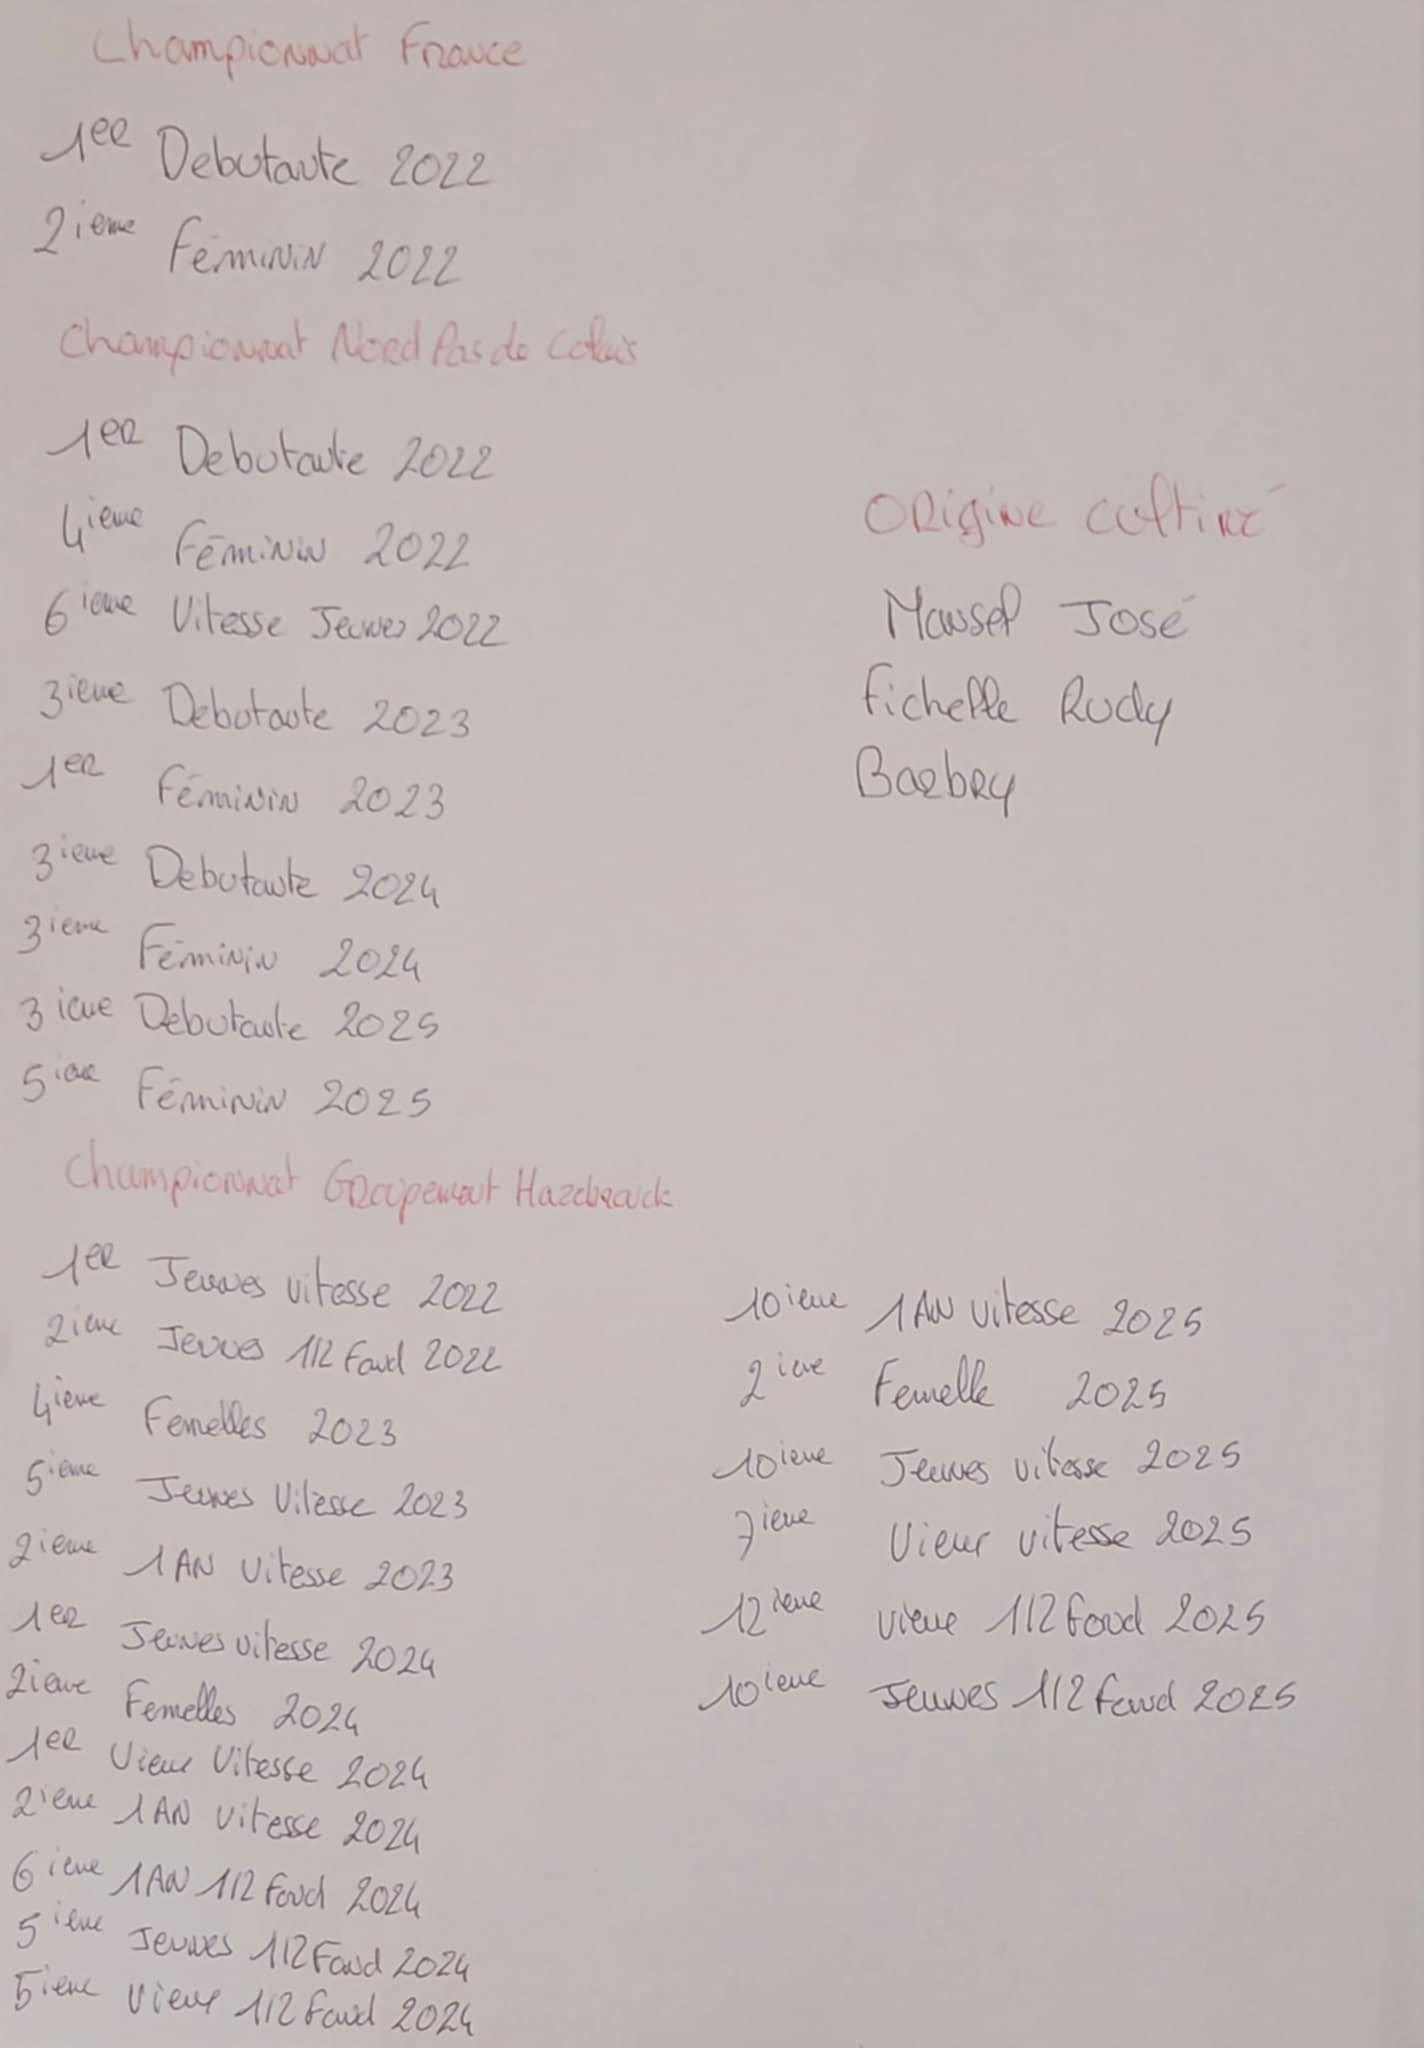 Championnat France
1er Debutante 2022
2ieme Féminin 2022
Championnat Nord Pas de Calais
1er Debutante 2022
4ieme Féminin 2022
6ieme Vitesse Jeunes 2022
3ieme Debutante 2023
1er Féminin 2023
3ieme Debutante 2024
3ieme Féminin 2024
3ieme Debutante 2025
5ieme Féminin 2025
Origine cultivé
Mansel José
Fichelle Rudy
Barbry
Championnat Groupement Hazebrouck
1er Jeunes vitesse 2022
2ieme Jeunes 1/2 Fond 2022
4ieme Femelles 2023
5ieme Jeunes Vitesse 2023
2ieme 1 AN Vitesse 2023
1er Jeunes vitesse 2024
2ieme Femelles 2024
1er Vieux Vitesse 2024
2ieme 1 AN Vitesse 2024
6ieme 1 AN 1/2 Fond 2024
5ieme Jeunes 1/2 Fond 2024
5ieme Vieux 1/2 Fond 2024
10ieme 1 AN Vitesse 2025
2ieme Femelle 2025
10ieme Jeunes vitesse 2025
7ieme Vieux vitesse 2025
12ieme vieux 1/2 fond 2025
10ieme Jeunes 1/2 fond 2025